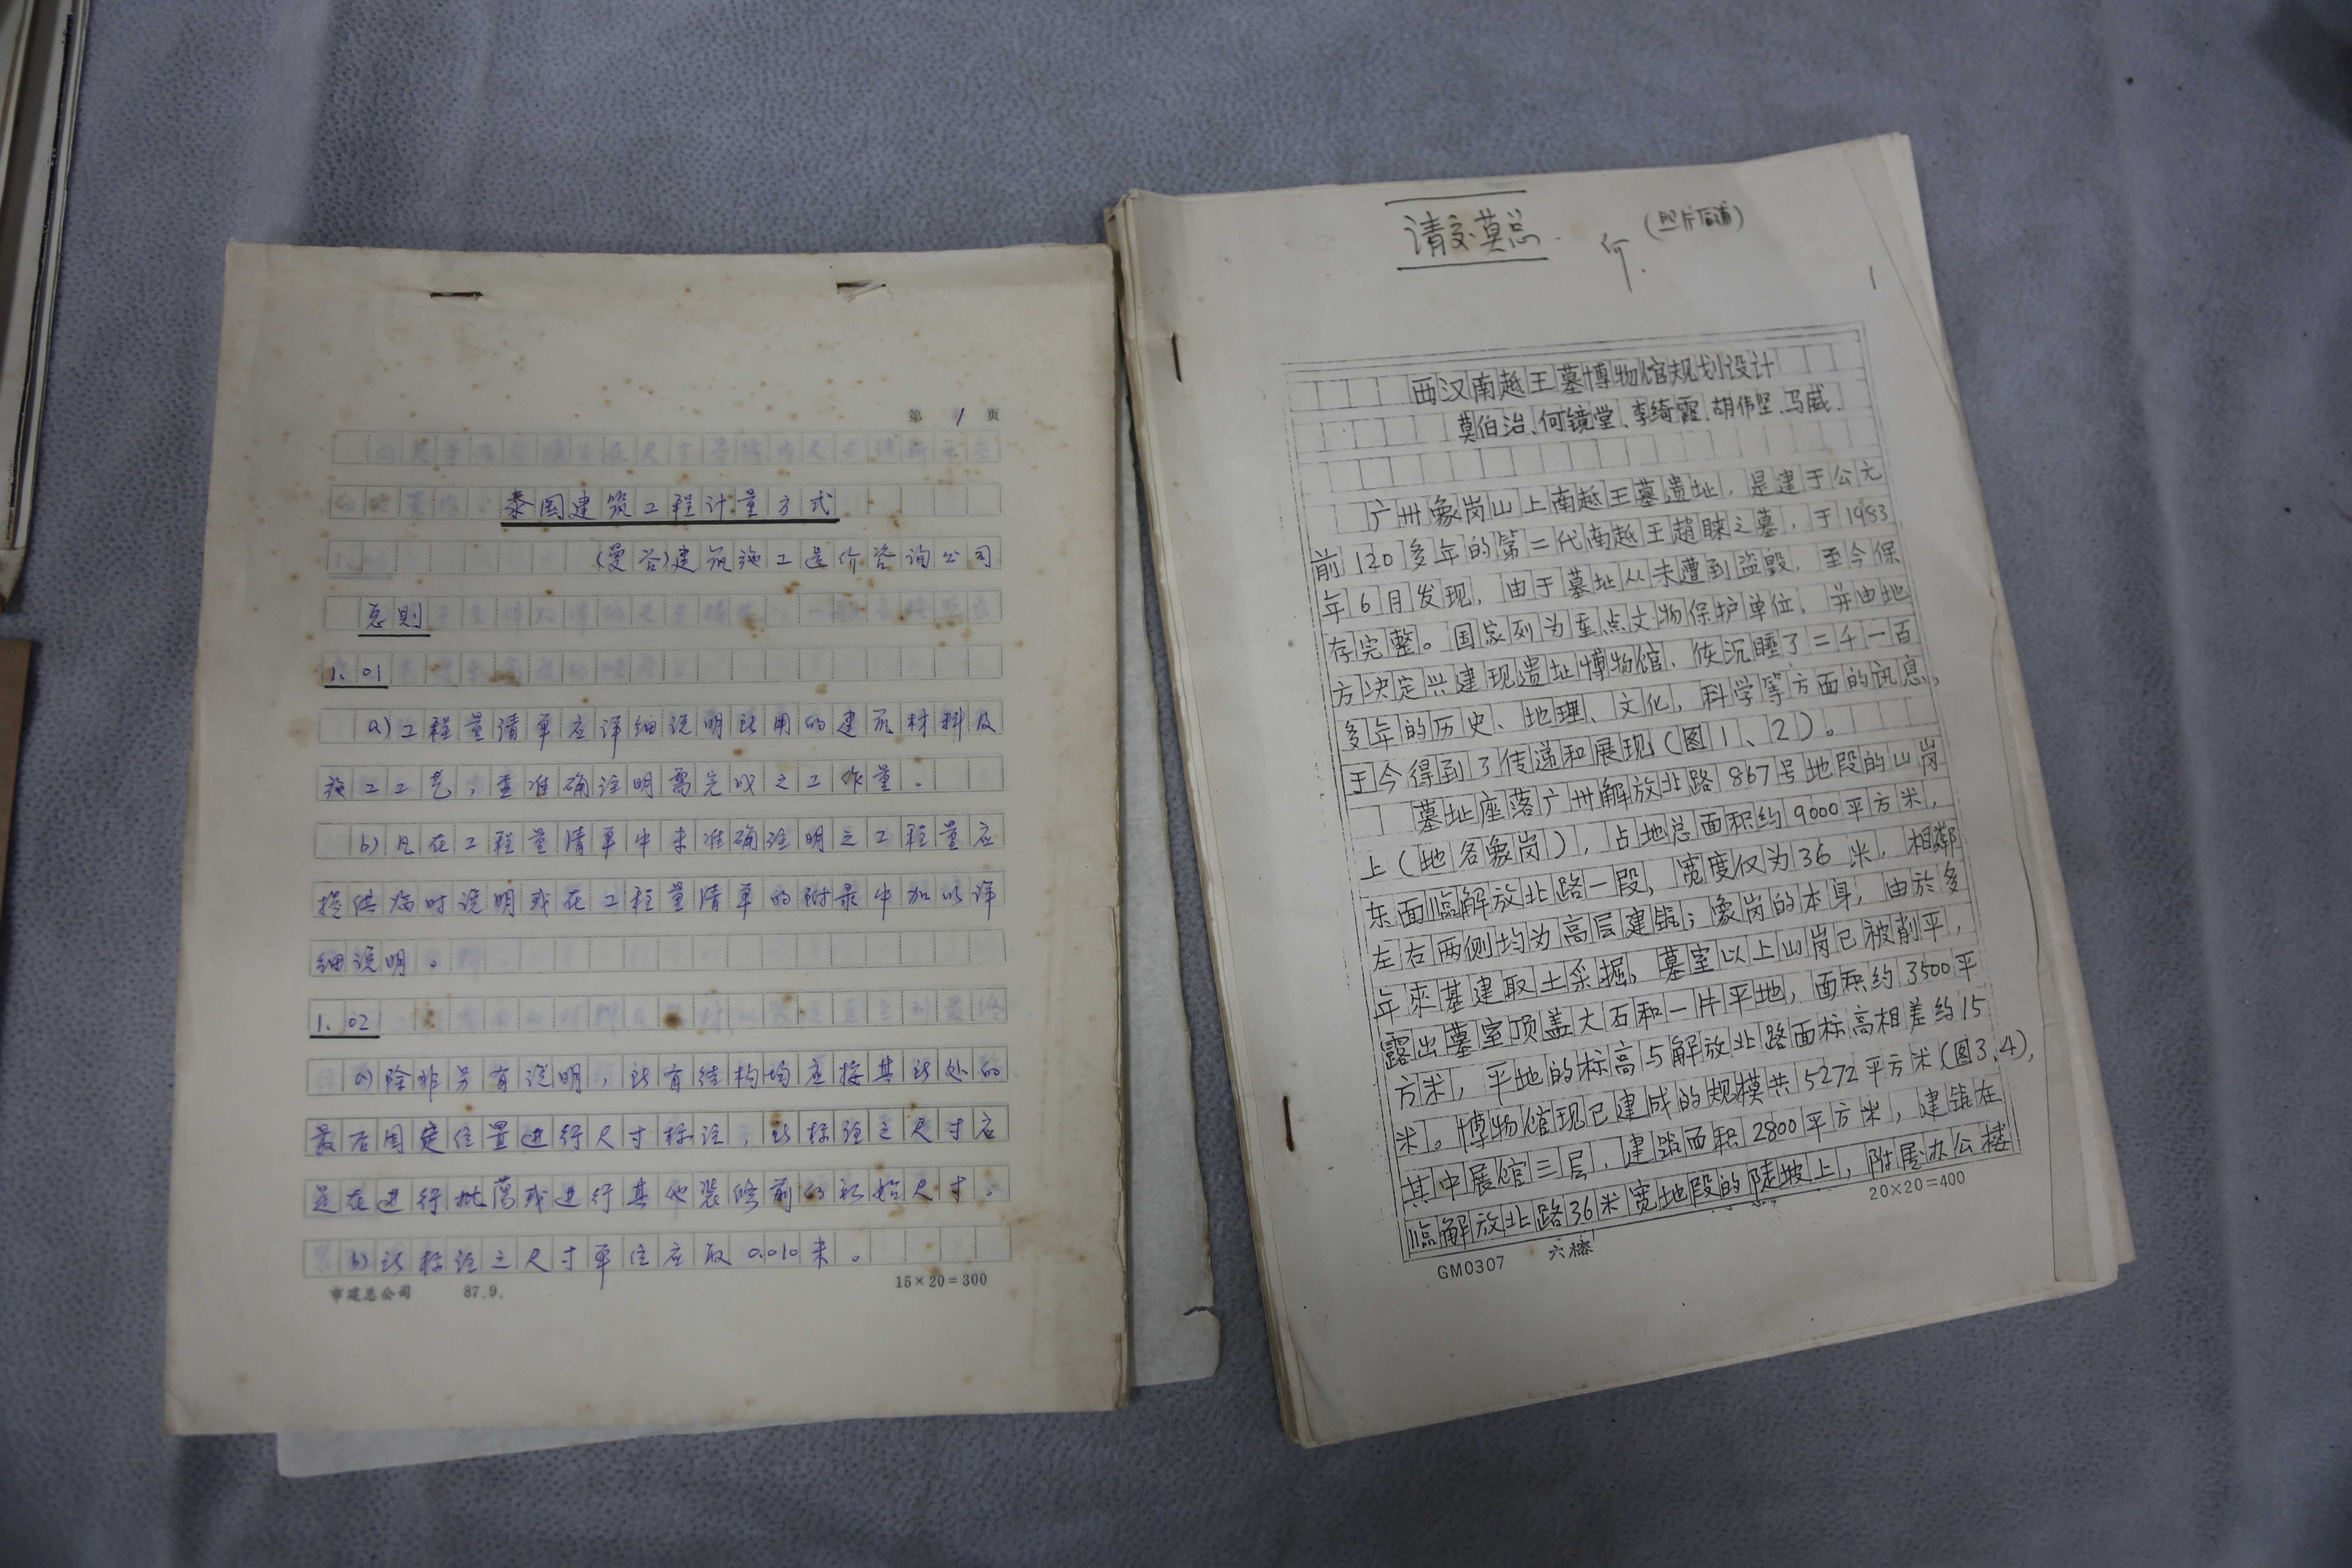 第 1 页
泰国建筑工程计量方式
(曼谷)建筑施工造价咨询公司
总则
1.01
a)工程量清单应详细说明所用的建筑材料及
施工工艺，并准确注明需完成之工作量。
b)凡在工程量清单中未准确注明之工程量应
提供临时说明或在工程量清单的附录中加以详
细说明。
1.02
a)除非另有说明，所有结构均应按其所处的
最后固定位置进行尺寸标注，所标注之尺寸应
是在进行批荡或进行其他装修前的初始尺寸。
b)所标注之尺寸单位应取0.010米。
市建总公司 87.9. 15×20=300
请交莫总. 何. (照片后补)
1
西汉南越王墓博物馆规划设计
莫伯治、何镜堂、李绮霞、胡伟坚、马威.
广州象岗山上南越王墓遗址，是建于公元
前120多年的第二代南越王趙眜之墓，于1983
年6月发现，由于墓址从未遭到盗毁，至今保
存完整。国家列为重点文物保护单位，并由地
方决定兴建现遗址博物馆、使沉睡了二千一百
多年的历史、地理、文化，科学等方面的讯息，
于今得到了传递和展现(图1、2)。
墓址座落广州解放北路867号地段的山岗
上(地名象岗)，占地总面积约9000平方米，
东面临解放北路一段，宽度仅为36米，相鄰
左右两侧均为高层建筑；象岗的本身，由於多
年來基建取土采掘，墓室以上山岗已被削平，
露出墓室顶盖大石和一片平地，面积约3500平
方米，平地的标高与解放北路面标高相差约15
米。博物馆现已建成的规模共5272平方米(图3、4)，
其中展馆三层，建筑面积2800平方米，建筑在
临解放北路36米宽地段的陡坡上，附属办公楼
GM0307 六榕 20×20=400